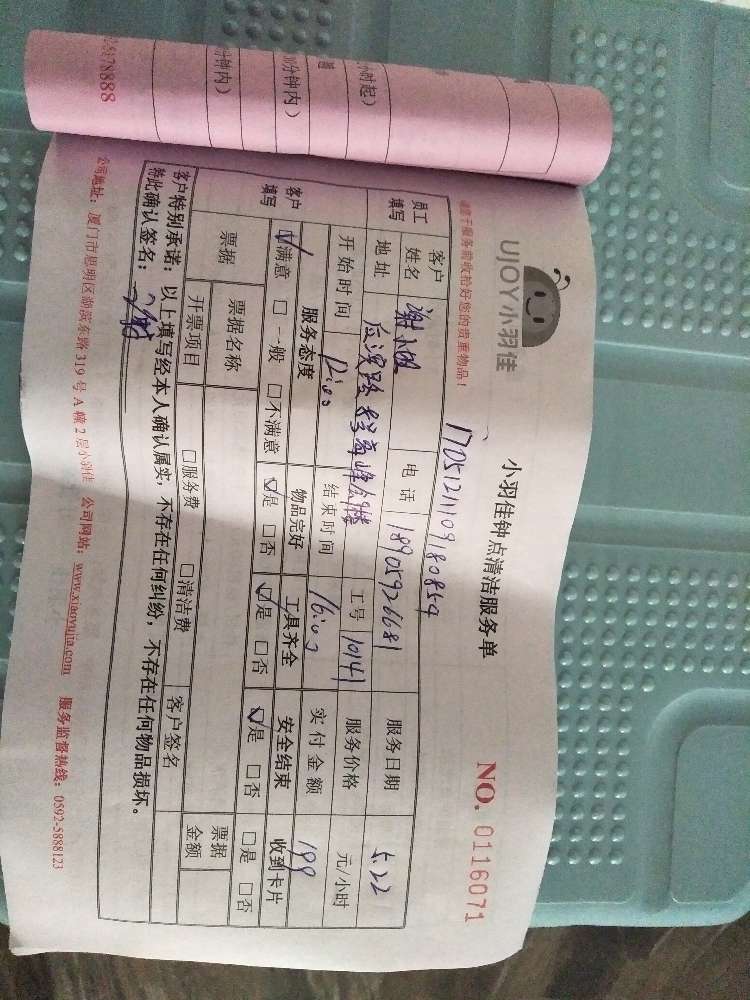 UJOY小羽佳
小羽佳钟点清洁服务单
NO. 0116071
请于服务前收拾好您的贵重物品!
170512111091808549
员工填写
客户姓名 谢 电话 18905926681 服务日期 5.22
地址 工号 10141 服务价格 元/小时
开始时间 12:00 结束时间 16:00 实付金额 199
客户填写
服务态度 物品完好 工具齐全 安全结束 收到卡片
☑满意 □一般 □不满意 ☑是 □否 ☑是 □否 ☑是 □否 □是 □否
票据 票据名称 □服务费 □清洁费 票据金额
开票项目 客户签名
客户特别承诺:以上填写经本人确认属实,不存在任何纠纷,不存在任何物品损坏。
特此确认签名:
公司地址:厦门市思明区湖滨东路319号A幢2层小羽佳 公司网站:www.xiaoyujia.com 服务监督热线:0592-5888123
小时起)
0分钟内)
分钟内)
5178888